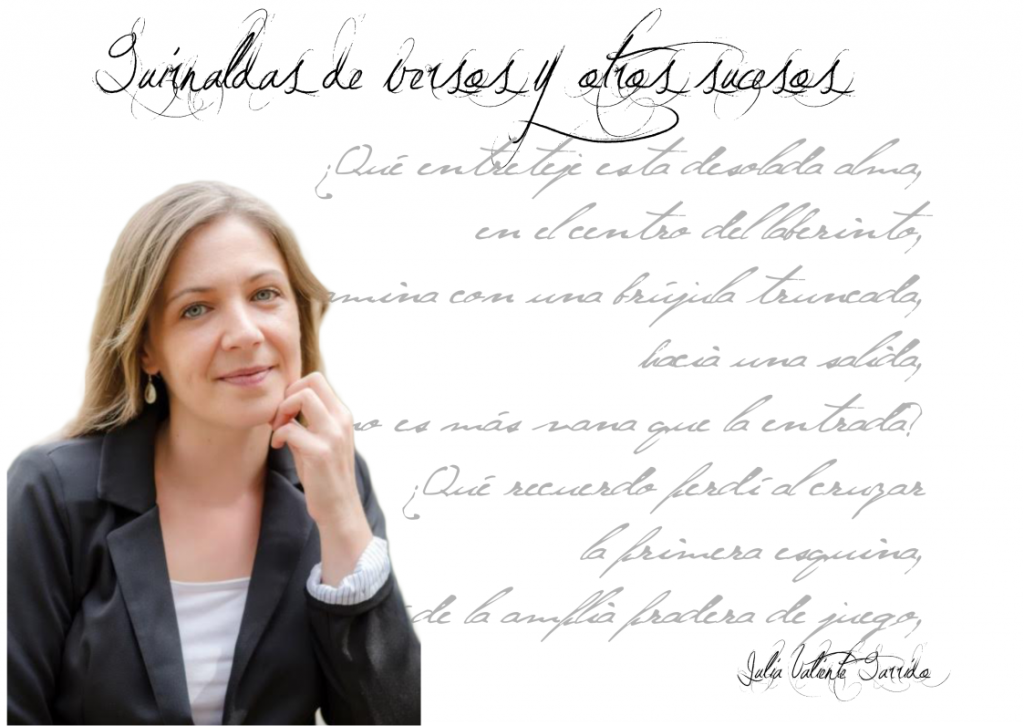 Guirnaldas de versos y otros sucesos
¿Qué entreteje esta desolada alma,
en el centro del laberinto,
amina con una brújula truncada,
hacia una salida,
no es más vana que la entrada?
¿Qué recuerdo perdí al cruzar
la primera esquina,
de la amplia pradera de juego,
Julia Valiente Garrido